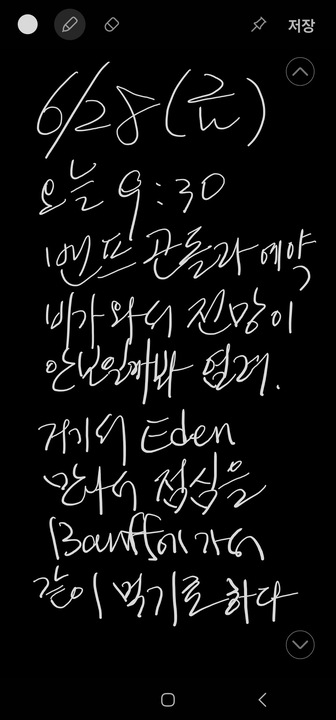 저장
6/28(금)
오늘 9:30
밴프 곤돌라 예약
비가 와서 전망이
안보일까봐 염려.
거기서 Eden
만나서 점심을
Banff에 가서
같이 먹기로 하다